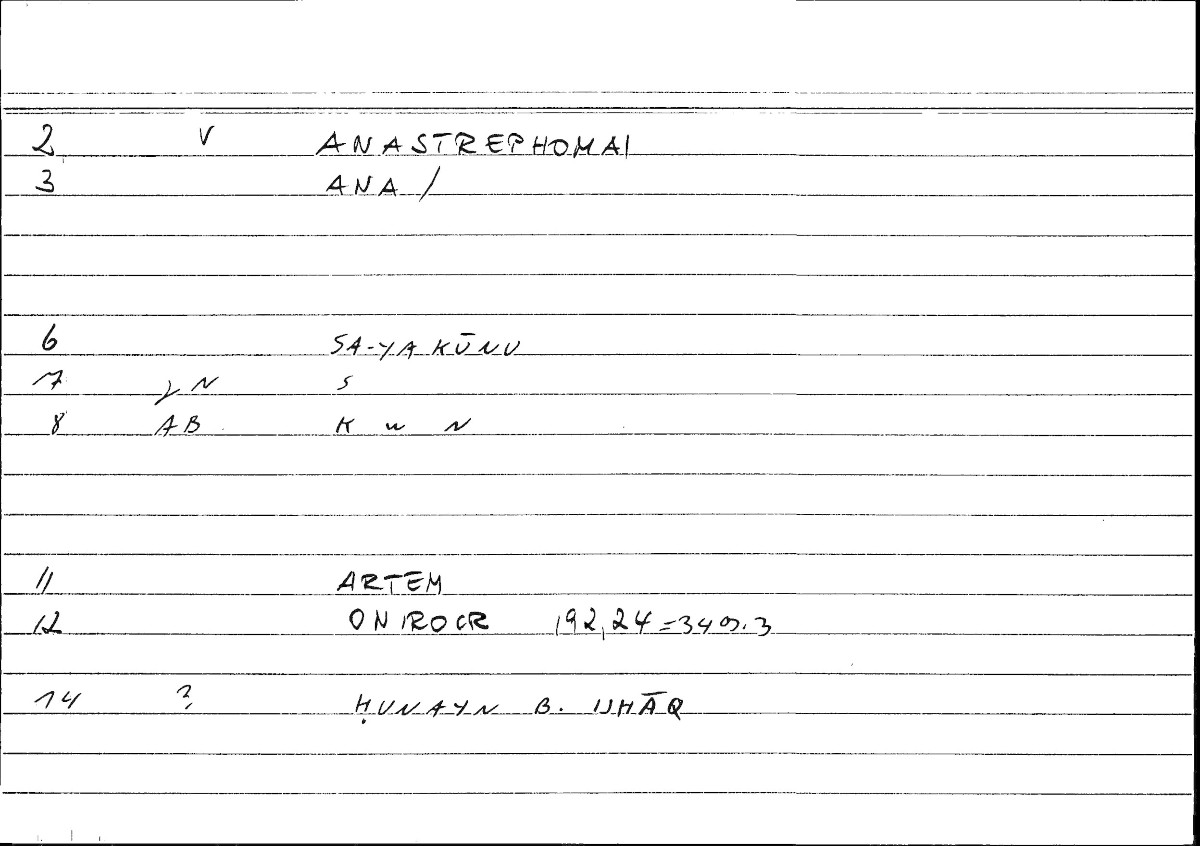 2 V ANASTREPHOMAI
3 ANA /
6 SA-YAKŪNU
7 S
8 AB K W N
11 ARTEM
12 ONIROCR 192,24=349.3
14 ? ḤUNAYN B. ISḤĀQ